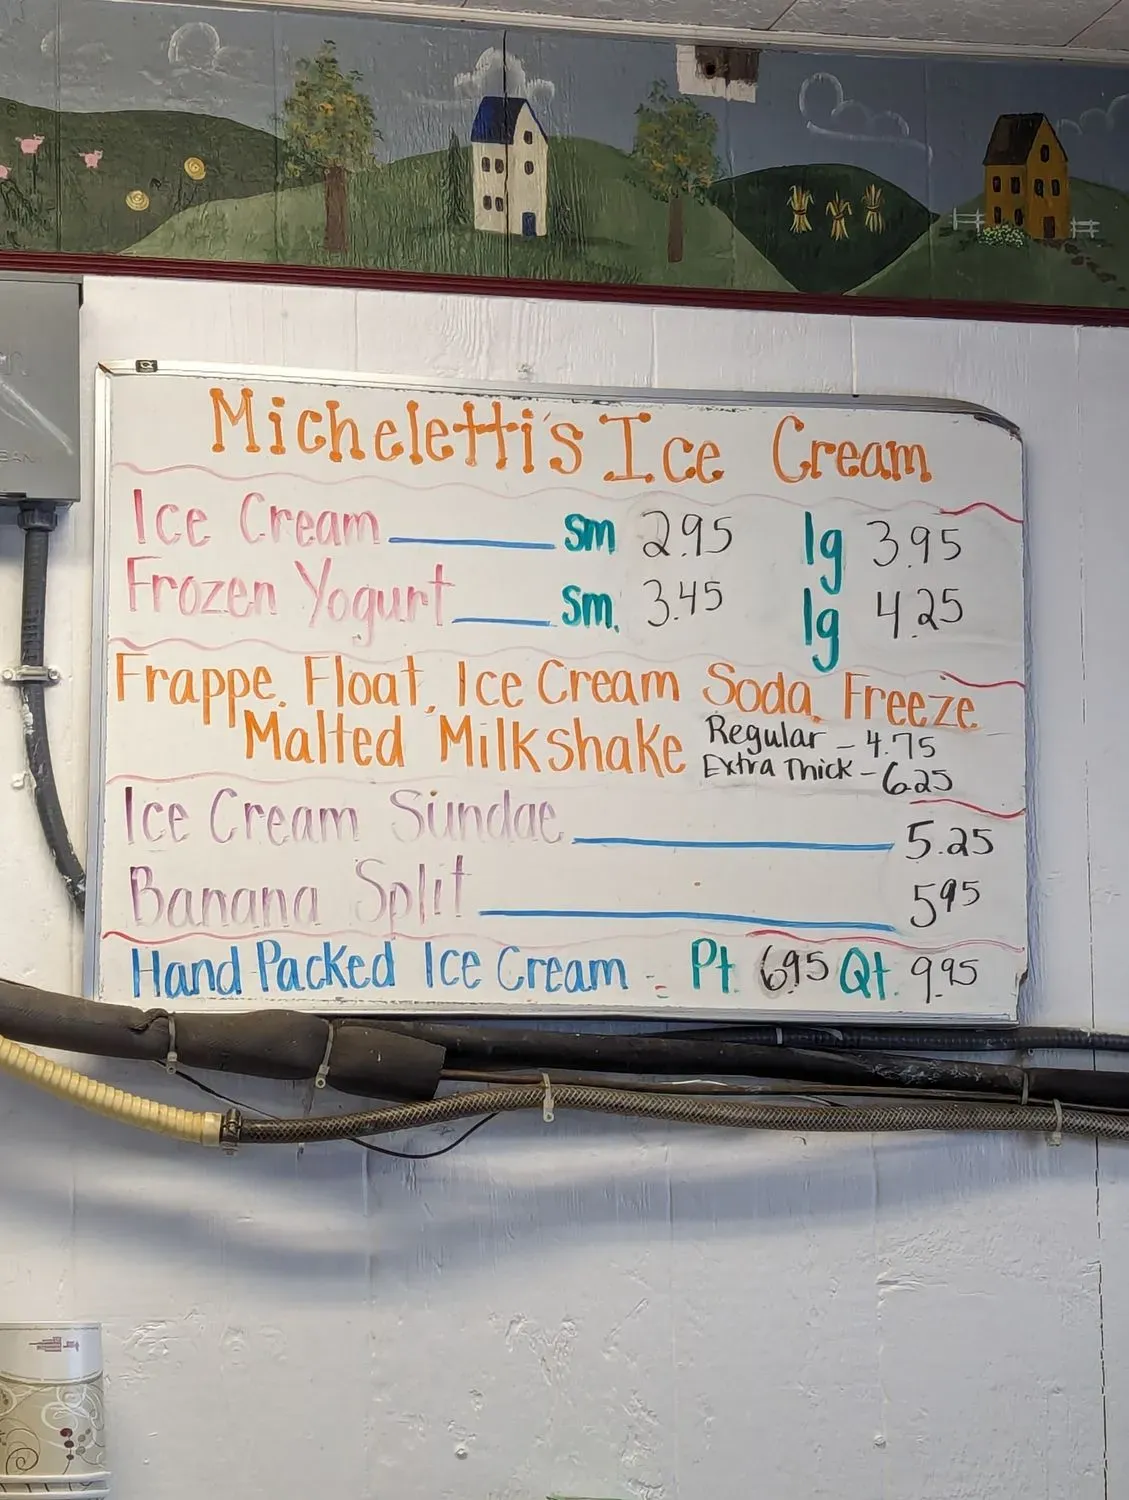 Micheletti's Ice Cream
Ice Cream sm 2.95 lg 3.95
Frozen Yogurt sm. 3.45 lg 4.25
Frappe, Float, Ice Cream Soda, Freeze
Malted Milkshake Regular - 4.75
Extra Thick - 6.25
Ice Cream Sundae 5.25
Banana Split 5.95
Hand Packed Ice Cream = Pt. 6.95 Qt. 9.95